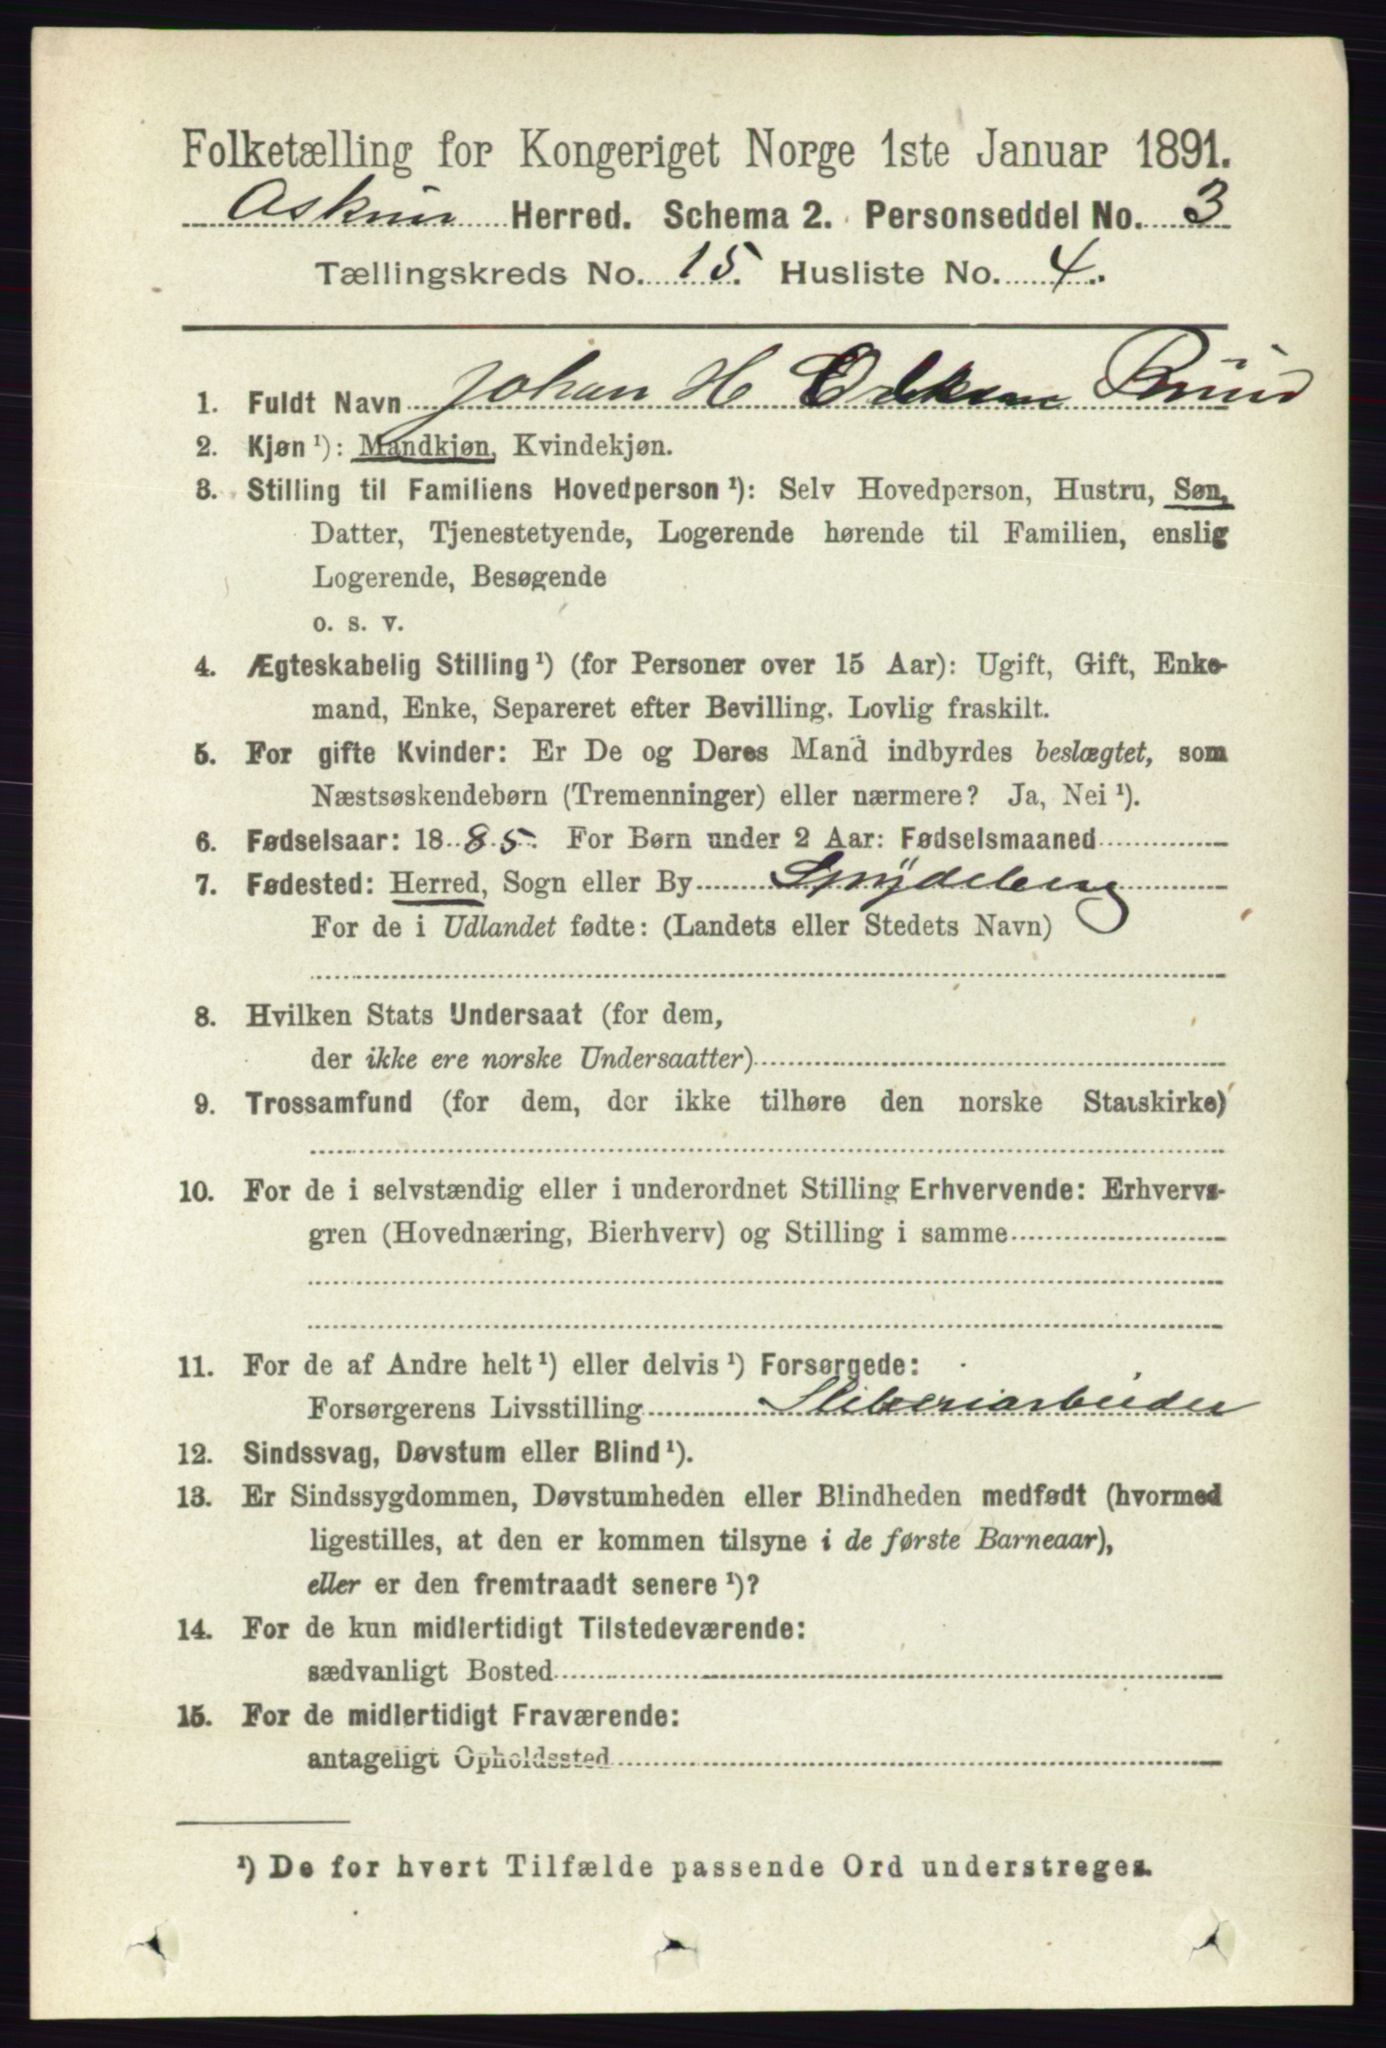 Folketælling for Kongeriget Norge 1ste Januar 1891.
Askim Herred. Schema 2. Personseddel No. 3
Tællingskreds No. 15. Husliste No. 4.
1. Fuldt Navn Johan H
2. Kjøn ¹): Mandkjøn, Kvindekjøn.
3. Stilling til Familiens Hovedperson ¹): Selv Hovedperson, Hustru, Søn,
Datter, Tjenestetyende, Logerende hørende til Familien, enslig
Logerende, Besøgende
o. s. v.
4. Ægteskabelig Stilling ¹) (for Personer over 15 Aar): Ugift, Gift, Enke-
mand, Enke, Separeret efter Bevilling. Lovlig fraskilt.
5. For gifte Kvinder: Er De og Deres Mand indbyrdes beslægtet, som
Næstsøskendebørn (Tremenninger) eller nærmere? Ja, Nei ¹).
6. Fødselsaar: 1885. For Børn under 2 Aar: Fødselsmaaned
7. Fødested: Herred, Sogn eller By Spydeberg
For de i Udlandet fødte: (Landets eller Stedets Navn)
8. Hvilken Stats Undersaat (for dem,
der ikke ere norske Undersaatter)
9. Trossamfund (for dem, der ikke tilhøre den norske Statskirke)
10. For de i selvstændig eller i underordnet Stilling Erhvervende: Erhvervs-
gren (Hovednæring, Bierhverv) og Stilling i samme
11. For de af Andre helt ¹) eller delvis ¹) Forsørgede:
Forsørgerens Livsstilling Sliberiarbeider
12. Sindssvag, Døvstum eller Blind ¹).
13. Er Sindssygdommen, Døvstumheden eller Blindheden medfødt (hvormed
ligestilles, at den er kommen tilsyne i de første Barneaar),
eller er den fremtraadt senere ¹)?
14. For de kun midlertidigt Tilstedeværende:
sædvanligt Bosted
15. For de midlertidigt Fraværende:
antageligt Opholdssted
¹) De for hvert Tilfælde passende Ord understreges.